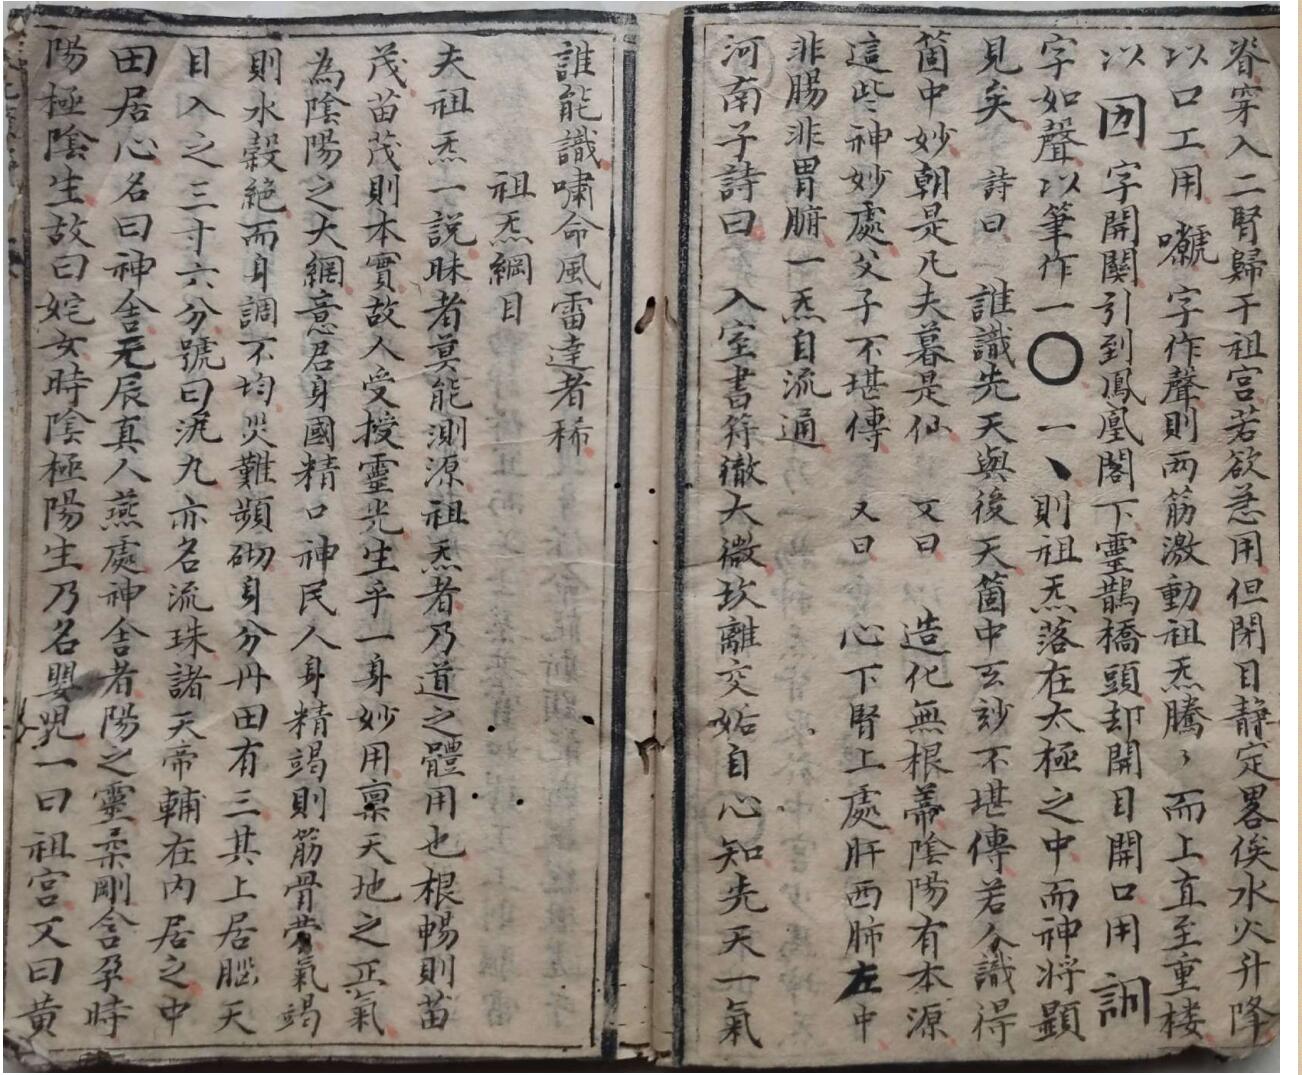 脊穿入二腎歸于祖宫若欲急用但閉目静定畧俟水火升降
以口工用 字作聲則两筋激動祖炁騰〻而上直至重楼
以 字開關引到鳳凰閣下靈鵲橋頭却開目開口用
字如聲以筆作一〇一丶則祖炁落在太極之中而神将顕
見矣 詩曰 誰識先天與後天箇中玄玅不堪傳若人識得
箇中妙朝是凡夫暮是仙 又曰 造化無根蒂陰陽有本源
這些神妙處父子不堪傳 又曰 心下腎上處肝西肺左中
非腸非胃腑一炁自流通
河南子詩曰 入室書符徹大微坎離交姤自心知先天一氣
誰能識嘯命風雷達者稀
祖炁綱目
夫祖炁一説昧者莫能測源祖炁者乃道之體用也根暢則苗
茂苗茂則本實故人受授靈光生乎一身妙用禀天地之正氣
為陰陽之大綱意君身國精口神民人身精竭則筋骨勞氣竭
則水穀絶而身調不均災難頻砌身分丹田有三其上居腦天
目入之三寸六分號曰泥九亦名流珠諸天帝輔在内居之中
田居心名曰神舍元辰真人燕處神舍者陽之靈柔剛含孕時
陽極陰生故曰姹女時陰極陽生乃名嬰児一曰祖宫又曰黄